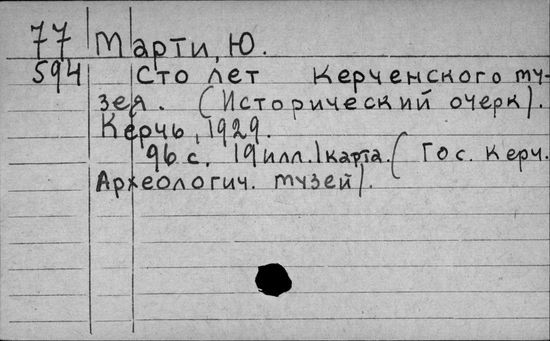 77 Марти, Ю.
594 Сто лет Керченского му-
зея. (Исторический очерк).
Керчь, 1929.
96 с. 19 илл. 1 карта. (Гос. Керч.
Археологич. музей).